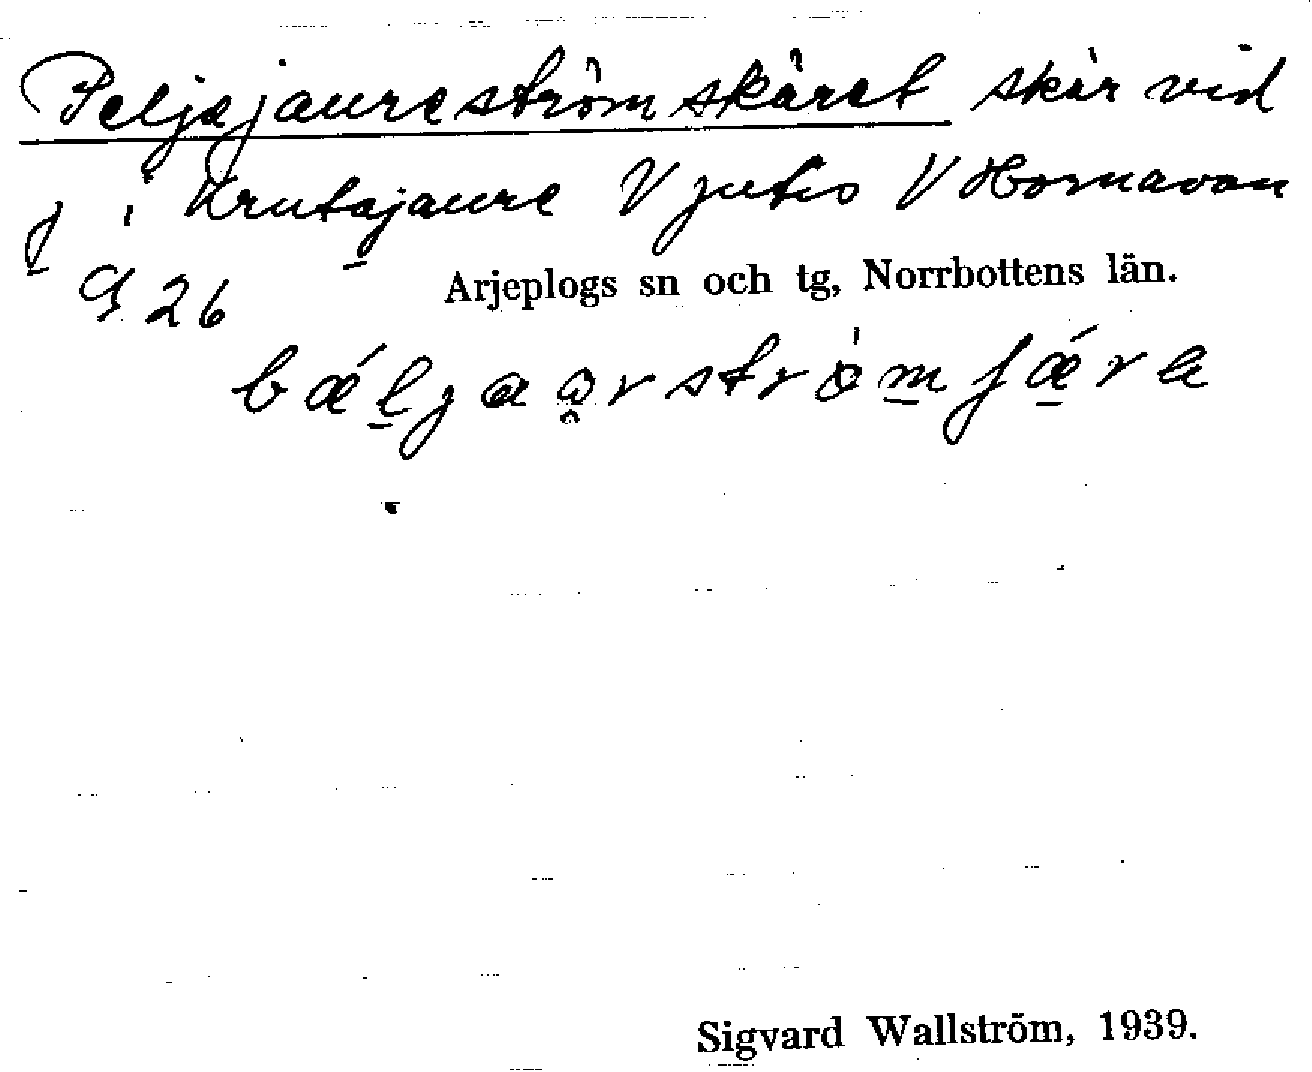 Peljajaureströmskäret skär vid
j i Krutajaure V Jutis V Hornavan
G 26
Arjeplogs sn och tg, Norrbottens län.
Sigvard Wallström, 1939.